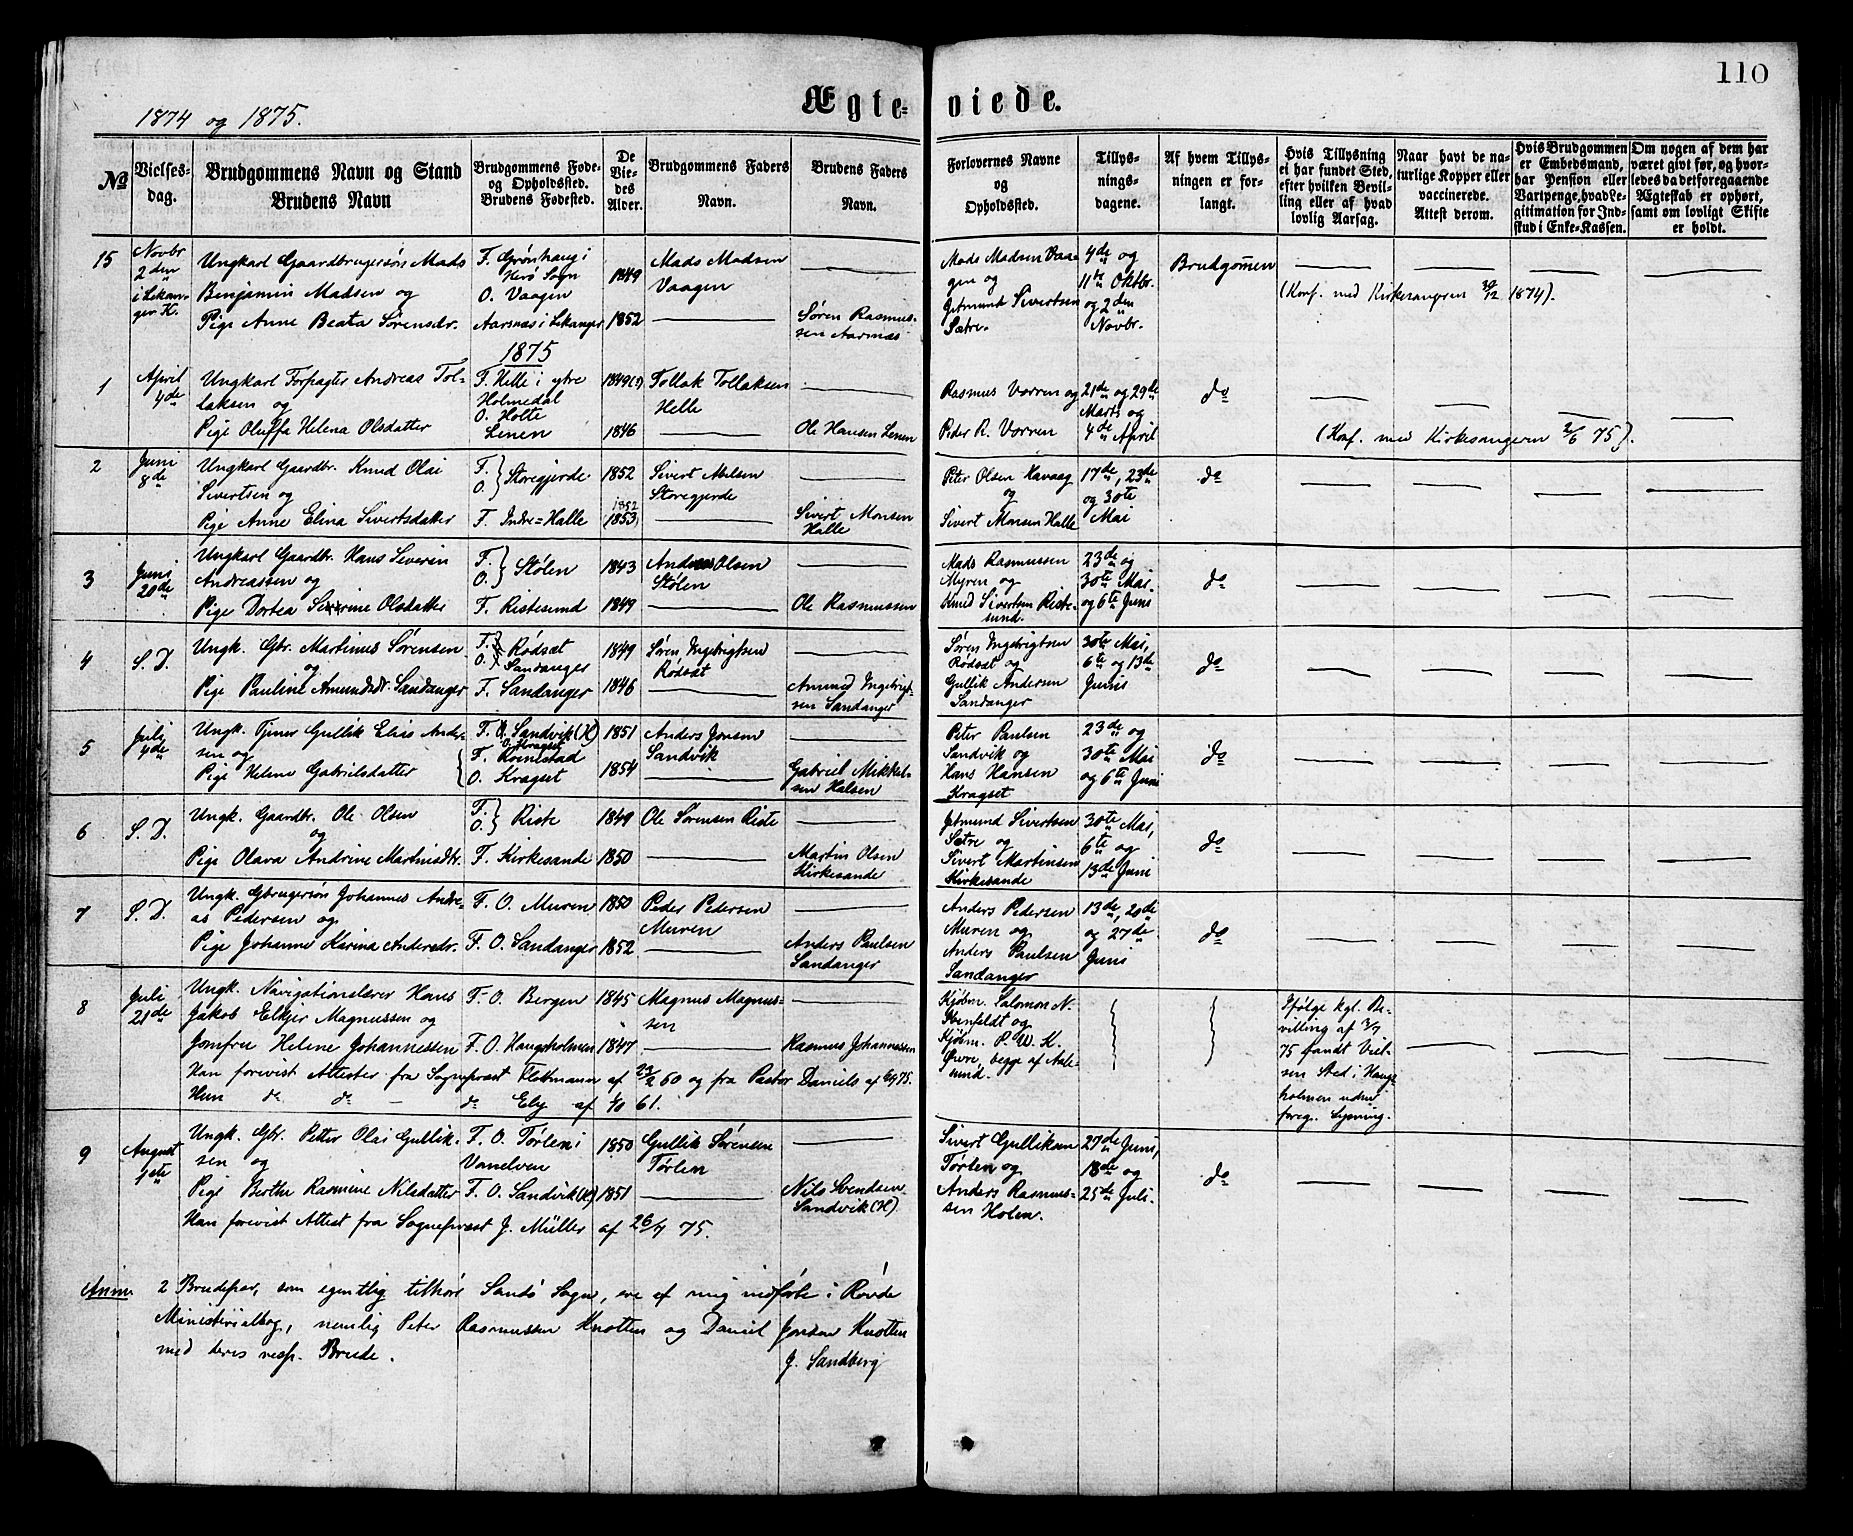 110
1874 og 1875.
Ægte=
viede.
No
Vielses-
dag.
Brudgommens Navn og Stand
Brudens Navn
Brudgommens Føde-
og Opholdssted.
Brudens Fødested.
De
Vie-
des
Alder.
Brudgommens Faders
Navn.
Brudens Faders
Navn.
Forlovernes Navne
og
Opholdssted.
Tillys-
nings-
dagene.
Af hvem Tillys-
ningen er for-
langt.
Hvis Tillysning
ei har fundet Sted,
efter hvilken Bevil-
ling eller af hvad
lovlig Aarsag.
Naar havt de na-
turlige Kopper eller
vaccinerede.
Attest derom.
Hvis Brudgommen
er Embedsmand,
har Pension eller
Varipenge, hvad Le-
gitimation for Ind-
skud i Enke-Kassen.
Om nogen af dem har
været givt før, og hvor-
ledes da det foregaaende
Ægteskab er ophørt,
samt om lovligt Skifte
er holdt.
15
Novbr
2den
i Lekan-
ger K.
Ungkarl Gaardbrugersøn Mads
Benjamin Madsen og
Pige Anne Beata Sørensdr.
F. Grønhaug i
Herø Sogn
O. Vaagen
Aarsnæs i Lekanger
1849
1852
Mads Madsen
Vaagen
Søren Rasmus-
sen Aarsnæs
Mads Madsen Vaa-
gen og
Jetmund Sivertsen
Sætre.
4de og
11te Oktbr.
og 2den
Novbr.
Brudgommen
(Konf. med Kirkesangeren 30/12 1874).
1875
1
April
4de
Ungkarl Forpagter Andreas Tol-
laksen og
Pige Oluffa Helena Olsdatter
F. Helle i ytre
Holmedal
O. Holte
Lenen
1849(?)
1846
Tollak Tollaksen
Helle
Ole Hansen Lenen
Rasmus Vorren og
Peder R. Vorren
21de og 29de
Marts og
4de April
do
(Konf. med Kirkesangeren 2/6 75).
2
Juni
8de
Ungkarl Gaardbr. Knud Olai
Sivertsen og
Pige Anne Elina Sivertsdatter
F.
O.
Storegjerde
F. Indre=Halle
1852
1852
1853
Sivert Abelsen
Storegjerde
Sivert Monsen
Halle
Peter Olsen Havaag
og
Sivert Monsen Halle
17de, 23de
og 30te
Mai
do
3
Juni
20de
Ungkarl Gaardbr. Hans Severin
Andreassen og
Pige Dortea Severine Olsdatter
F.
O.
Stølen
F. Ristesund
1843
1849
Andreas Olsen
Stølen
Ole Rasmussen
Mads Rasmussen
Myren og
Knud Sivertsen Riste-
sund.
23de og
30te Mai
og 6te Juni
do
4
S. D.
Ungk. Gbr. Martinus Sørensen
og
Pige Pauline Amundsdr. Sandanger
F. Rødsæt
O. Sandanger
F. Sandanger
1849
1846
Søren Ingebrigtsen
Rødsæt
Amund Ingebrigt-
sen Sandanger
Søren Ingebrigtsen
Rødsæt og
Gullik Andersen
Sandanger
30te Mai,
6te og 13de
Juni
do
5
Juli
4de
Ungk. Tjener Gullik Elias Ander-
sen og
Pige Helene Gabrielsdatter
F. O. Sandvik (H)
O. Kragset
F. Kvinestad
O. Kragset
1851
1854
Anders Jonsen
Sandvik
Gabriel Mikkel-
sen Halsen
Peter Paulsen
Sandvik og
Hans Hansen
Kragset
23de og
30te Mai
og 6te Juni
do
6
S. D.
Ungk. Gaardbr. Ole Olsen
og
Pige Olava Andrine Martinsdtr.
F.
O.
Riste
F. Kirkesande
1849
1850
Ole Sørensen Riste
Martin Olsen
Kirkesande
Jetmund Sivertsen
Sætre og
Sivert Martinsen
Kirkesande
30te Mai,
6te og
13de Juni
do
7
S. D.
Ungk. Gbrugersøn Johannes Andre-
as Pedersen og
Pige Johanne Karina Andersdr.
F. O. Muren
F. O. Sandanger
1850
1852
Peder Pedersen
Muren
Anders Paulsen
Sandanger
Anders Pedersen
Muren og
Anders Paulsen
Sandanger
13de, 20de
og 27de
Juni
do
8
Juli
21de
Ungk. Navigationslærer Hans
Jakob Elkjer Magnussen og
Jomfru Helene Johannessen
F. O. Bergen
F. O. Haugsholmen
1845
1847
Magnus Magnus-
sen
Rasmus Johannessen
Han forevist Attester fra Sogneprest Flottmann af 23/2 60 og fra Pastor Daniels af 6/7 75.
Hun do do — do Eby af 4/10 61.
Kjøbm. Salomon N.
Svenfeldt og
Kjøbm. P. W. K.
Øwre, begge af Aale-
sund.
Ifølge kgl. Be-
villing af 3/7
75 fandt Viel-
sen Sted i Haugs-
holmen uden
foreg. Lysning.
9
August
1ste
Ungk. Gbr. Petter Olai Gullik-
sen og
Pige Berthe Rasmine Nilsdatter
F. O. Tørlen i
Vanelven
F. O. Sandvik (H)
1850
1851
Gullik Sørensen
Tørlen
Nils Svendsen
Sandvik (H)
Han forevist Attest fra Sogneprest J. Müller af 26/7 75.
Sivert Gulliksen
Tørlen og
Anders Rasmus-
sen Holen.
27de Juni,
18de og
25de Juli.
do
Anm. 2 Brudepar, som egentlig tilhøre Sandø Sogn, ere af mig indførte i Røvde
Ministerialbog, nemlig Peter Rasmussen Knotten og Daniel Jonsen Knotten
med deres resp. Brude.
J. Sandberg